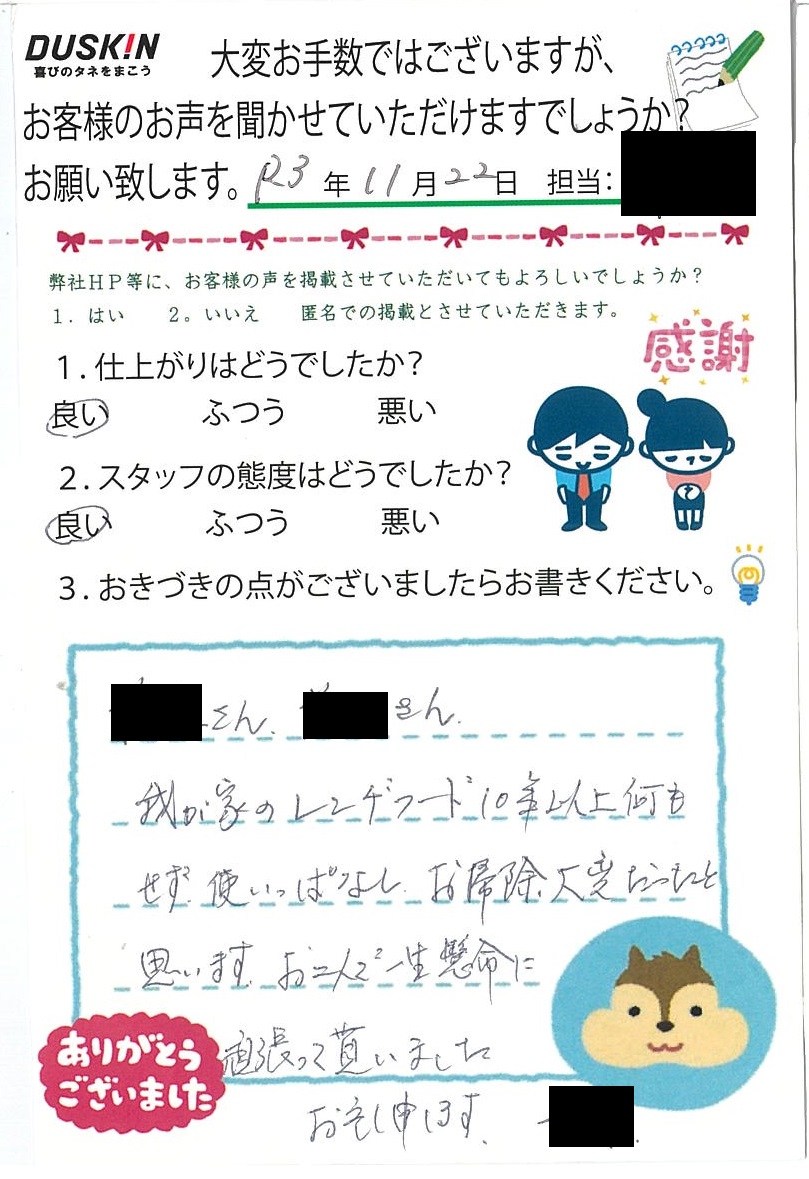 DUSK!N
喜びのタネをまこう
大変お手数ではございますが、
お客様のお声を聞かせていただけますでしょうか?
お願い致します。R3年11月22日 担当:
弊社HP等に、お客様の声を掲載させていただいてもよろしいでしょうか?
1. はい 2。いいえ 匿名での掲載とさせていただきます。
感謝
1.仕上がりはどうでしたか?
良い ふつう 悪い
2.スタッフの態度はどうでしたか?
良い ふつう 悪い
3.おきづきの点がございましたらお書きください。
さん、 さん、
我が家のレンジフード10年以上何も
せず、使いっぱなし、お掃除、大変だったと
思います。お二人で一生懸命に
頑張って貰いました
ありがとう
ございました
申します。